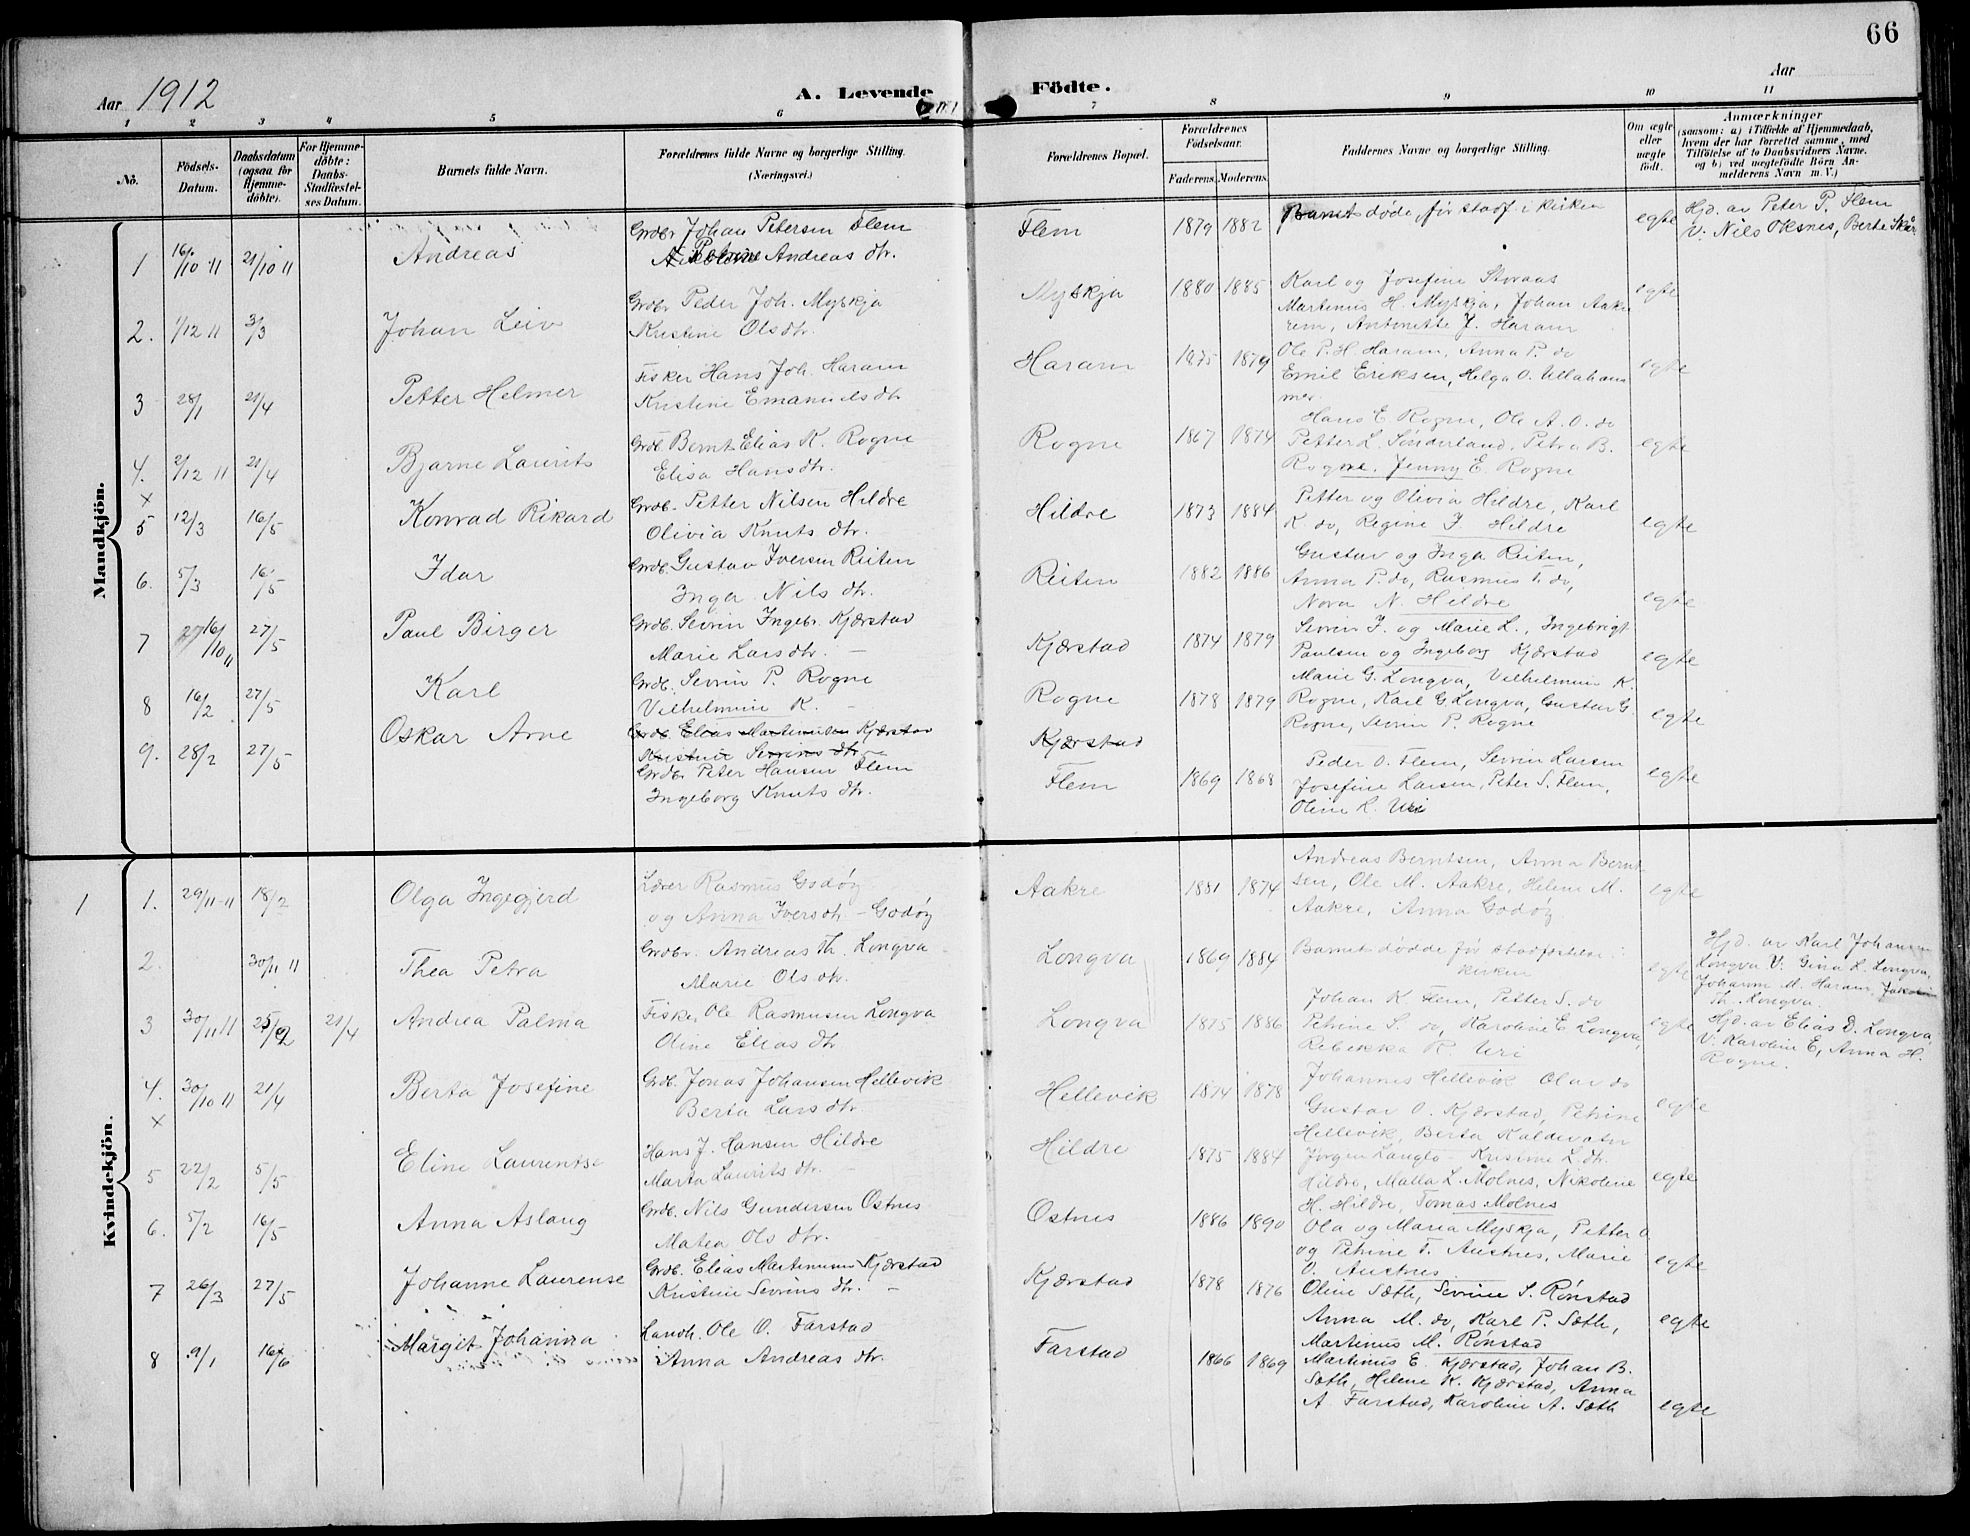 66
Aar 1912
A. Levende Födte.
Aar
1 2 3 4 5 6 7 8 9 10 11
No.
Födsels-Datum.
Daabsdatum (ogsaa for Hjemme-döbte).
For Hjemme-döbte: Daabs-Stadfæstel-ses Datum.
Barnets fulde Navn.
Forældrenes fulde Navne og borgerlige Stilling. (Næringsvei.)
Forældrenes Bopæl.
Forældrenes Födselsaar.
Faderens. Moderens.
Faddernes Navne og borgerlige Stilling.
Om ægte eller uægte födt.
Anmærkninger
(saasom: a) i Tilfælde af Hjemmedaab, hvem der har forrettet samme, med Tilföielse af to Daabsvidners Navne. og b) ved uægtefödte Börn An-melderens Navn m. V.)
Mandkjön.
1 16/10 11 21/10 11 Andreas
Grdbr Johan Petersen Flem
Petrine Andreas dtr.
Flem 1879 1882 Barnet døde før stadf. i kirken egte
Hjd. av Peter P. Flem
V: Nils Oksnes, Berte Skår
2. 1/12 11 3/3 Johan Leiv
Grdbr Peder Joh. Myskja
Kristine Olsdtr.
Myskja 1880 1885
Karl og Josefine Storaas
Martinus H. Myskja, Johan Aak-
rem, Antonette J. Haram
egte
3 28/1 21/4 Petter Helmer
Fisker Hans Joh. Haram
Kristine Emanuels dtr
Haram 1875 1879
Ole P. H. Haram, Anna P. do
Emil Eriksen, Helga O. Ullaham
mer.
egte
4. 2/12 11 21/4 Bjarne Laurits
Grdb. Bernt Elias K. Rogne
Elisa Hansdtr.
Rogne 1867 1874
Hans E Rogne, Ole A. O. do
Petter L. Sønderland, Petra B.
Rogne, Jenny E. Rogne
egte
×
5 12/3 16/5 Konrad Rikard
Grdb. Petter Nilsen Hildre
Olivia Knuts dtr.
Hildre 1873 1884
Petter og Olivia Hildre, Karl
K. do, Regine J. Hildre
egte
6. 5/3 16/5 Idar
Grdb. Gustav Iversen Reiten
Inga Nils dtr.
Reiten 1882 1886
Gustav og Inga Reiten,
Anna P. do, Rasmus T. do,
Nora N. Hildre
egte
7 16/10 11 27/5 Paul Birger
Grdb. Sevrin Ingebr. Kjærstad
Marie Larsdtr. —
Kjærstad 1874 1879
Sevrin I. og Marie L., Ingebrigt
Paulsen og Ingeborg Kjærstad
egte
8 16/2 27/5 Karl
Grdb. Sevrin P. Rogne
Vilhelmine K. —
Rogne 1878 1879
Marie G. Longva, Vilhelmine K.
Rogne, Karl G. Longva, Gustav G.
Rogne, Sevrin P. Rogne
egte
9. 28/2 27/5 Oskar Arne
Grdb. Elias Martinusen Kjærstad
Kristine Sevrins dtr
Grdbr Peter Hansen Flem
Ingeborg Knuts dtr.
Kjærstad
Flem 1869 1868
Peder O. Flem, Sevrin Larsen
Josefine Larsen, Peter S. Flem,
Oline R. Uri
egte
Kvindekjön.
1 1. 29/11-11 18/2 Olga Ingegjerd
Lærer Rasmus Godøy
og Anna Iversdtr - Godøy
Aakre 1881 1874
Andreas Berntsen, Anna Bernt-
sen, Ole M. Aakre, Helene M.
Aakre, Anna Godøy
egte
2. 30/11 11 Thea Petra
Grdbr. Andreas Th. Longva
Marie Olsdtr.
Longva 1869 1884
Barnet dødde før stadfestelse i
kirken
egte
Hjd. av Karl Johansen
Longva V. Gina L. Longva,
Johanne M. Haram,
Th. Longva.
3 30/11 11 21/4 Andrea Palma
Fisker Ole Rasmusen Longva
Oline Elias dtr
Longva 1875 1886
Johan K. Flem, Petter S. do
Petrine S. do, Karoline E Longva,
Rebekka R. Uri
egte
Hjd. av Elias D. Longva
V. Karoline E, Anna H.
Rogne.
4. 30/10 11 21/4 Berta Josefine
Grdb. Jonas Johansen Hellevik
Berta Lars dtr
Hellevik 1874 1878
Johannes Hellevik Olav do
Gustav O. Kjærstad, Petrine
Hellevik, Berta Kaldevatn
egte
×
5 22/2 5/5 Eline Laurentse
Hans J. Hansen Hildre
Marta Laurits dtr. —
Hildre 1875 1884
Jørgen Langlo - Kristine L. dtr.
Hildre, Malla L. Molnes, Nikoline
H. Hildre, Tomas Molnes
egte
6. 5/2 16/5 Anna Aslaug
Grdb. Nils Gundersen Ostnes
Matea Ols dtr.
Ostnes 1886 1890
Ola og Maria Myskja, Petter O
og Petrine T. Austnes, Marie
O. Austnes
egte
7 26/3 27/5 Johanne Laurense
Grdb. Elias Martinusen Kjærstad
Kristine Sevrins dtr. —
Kjærstad 1878 1876
Oline Sæth, Sevrine S. Rønstad
Anna M. do, Karl P. Sæth,
Martinus M. Rønstad
egte
8 9/1 16/6 Margit Johanna
Landh. Ole O. Farstad
Anna Andreas dtr.
Farstad 1866 1869
Martinus E. Kjærstad, Johan B.
Sæth, Helene K. Kjærstad, Anna
A. Farstad, Karoline A. Sæth
egte